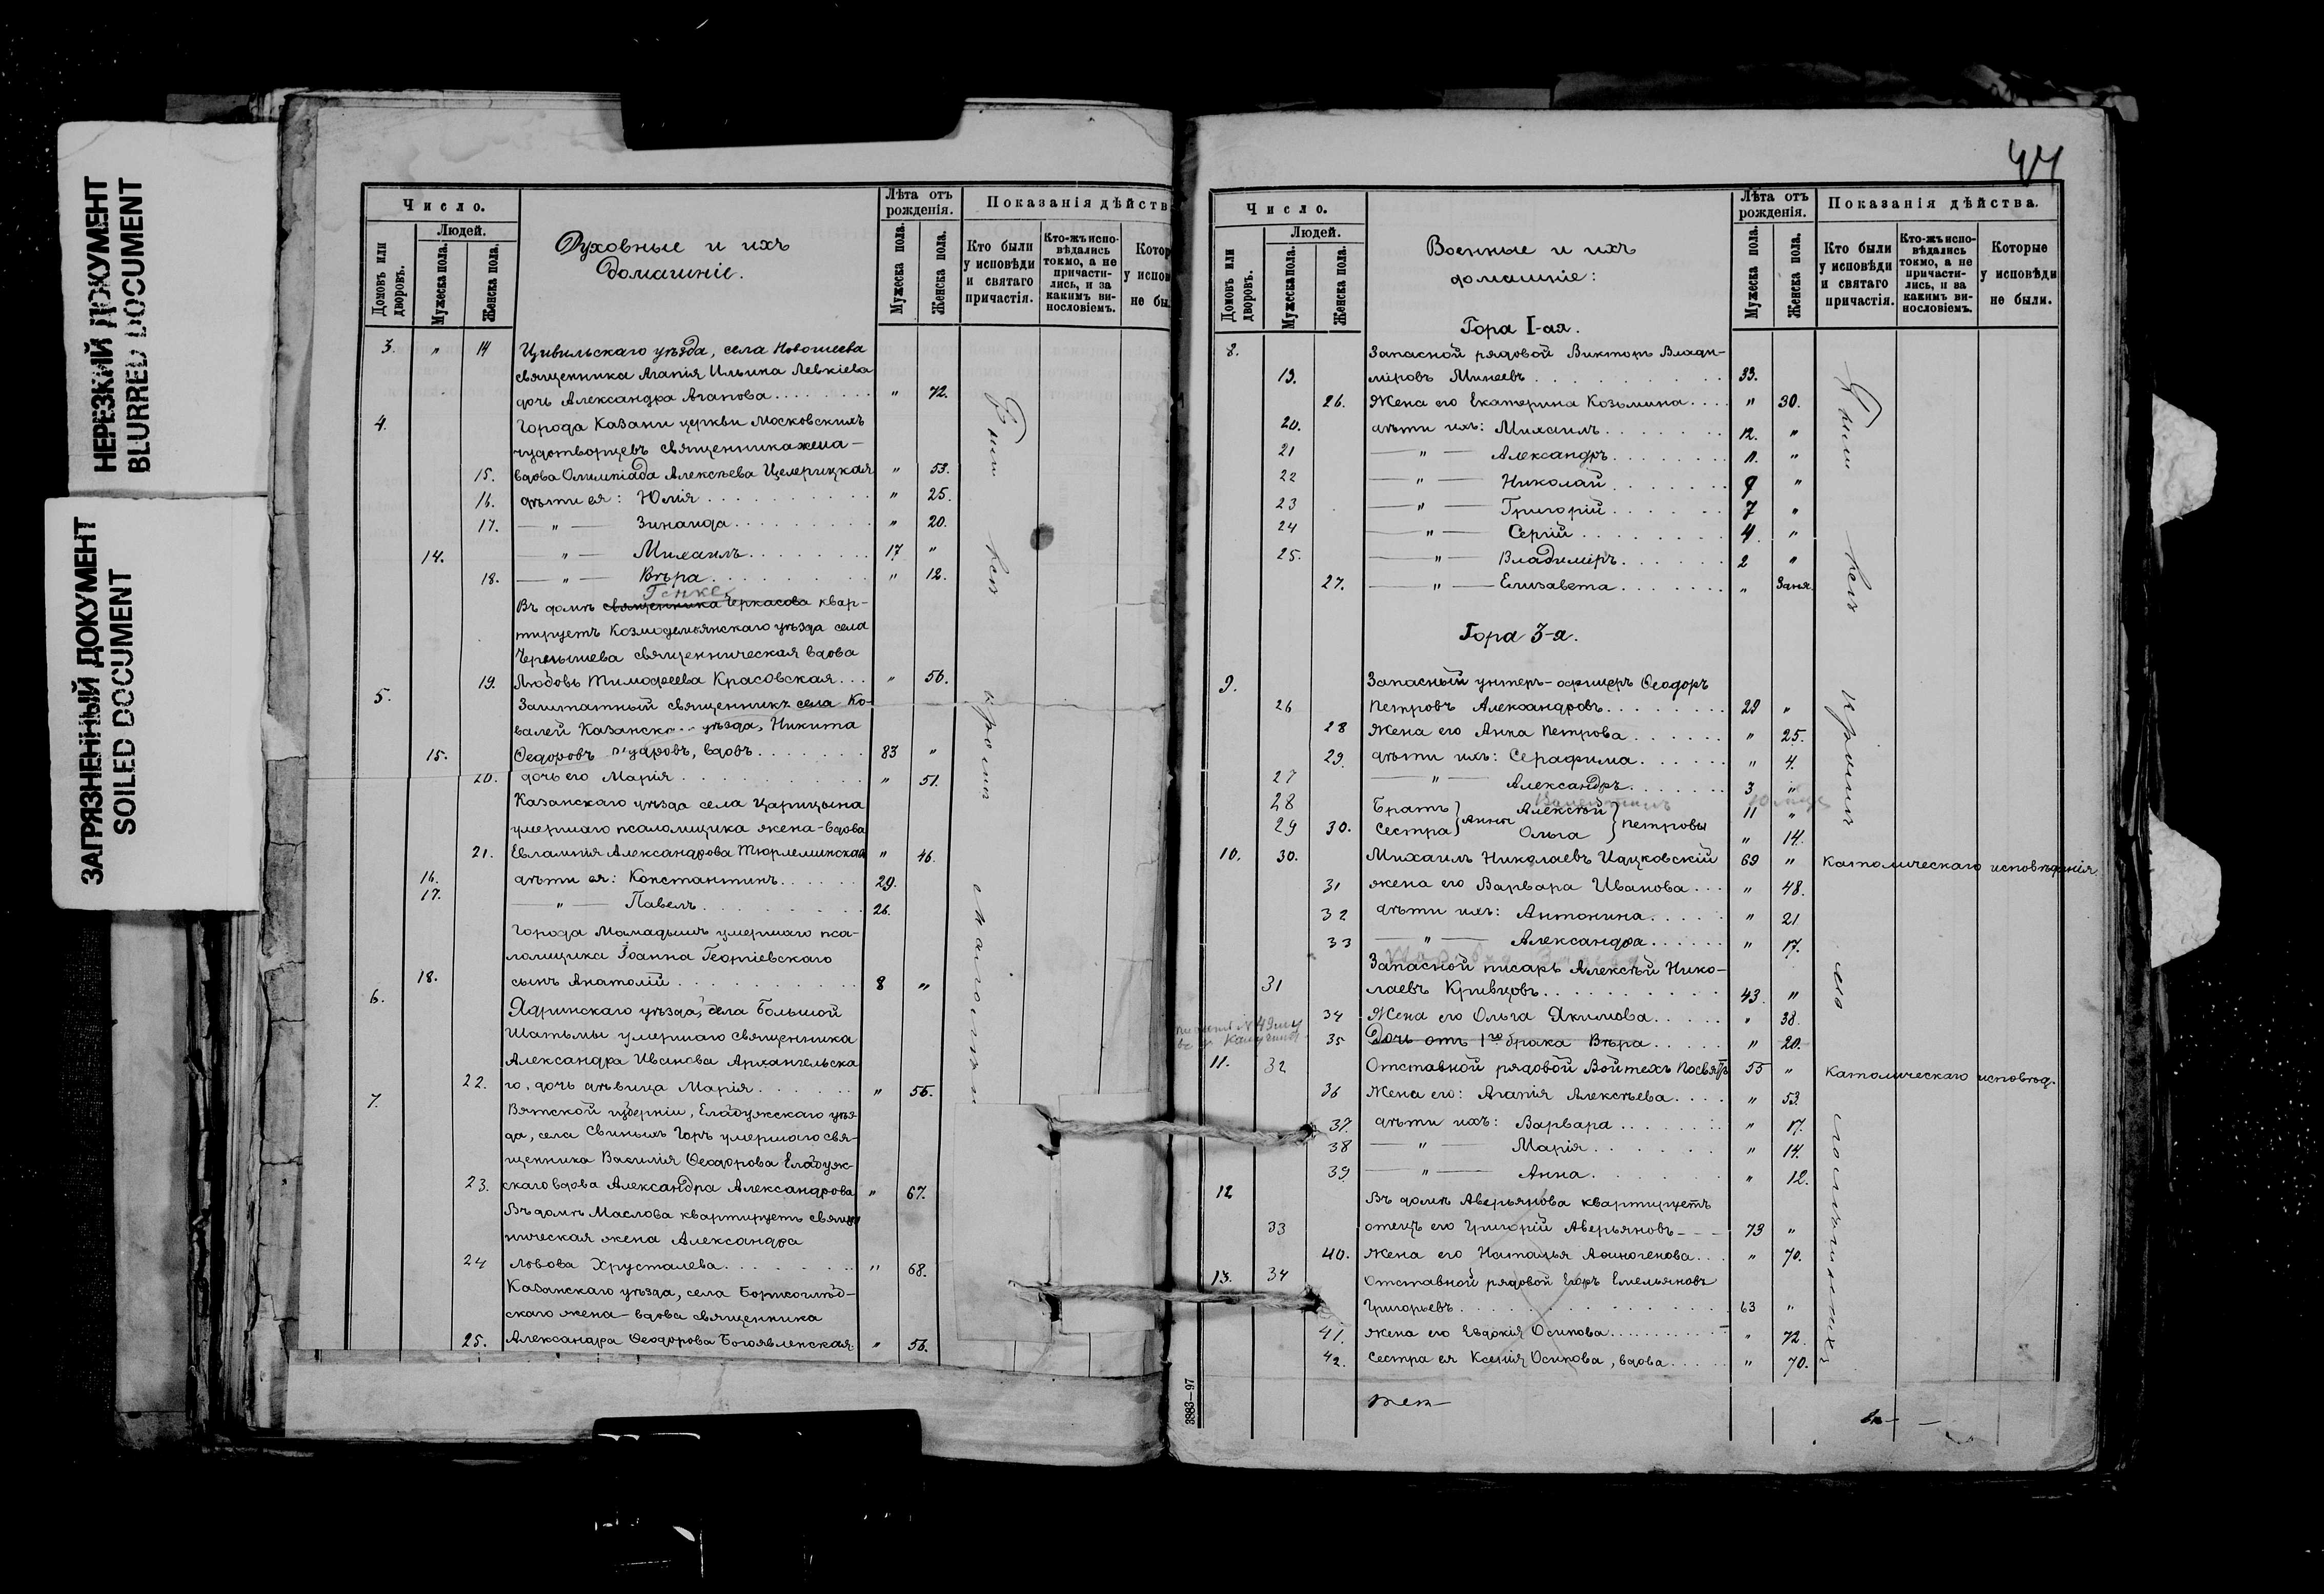 НЕРЕЗКИЙ ДОКУМЕНТ
BLURRED DOCUMENT
ЗАГРЯЗНЕННЫЙ ДОКУМЕНТ
SOILED DOCUMENT
Число.
Людей.
Домовъ или дворовъ.
Мужеска пола.
Женска пола.
Духовные и ихъ
домашніе.
Лѣта отъ рожденія.
Мужеска пола.
Женска пола.
Показанія дѣйств
Кто были у исповѣди и святаго причастія.
Кто-жъ испо-вѣдались токмо, а не причасти-лись, и за какимъ ви-нословіемъ.
Котор у испов не бы
3. " 14 Цивильскаго уѣзда, села Новошеева
священника Агапія Ильина Левкіева
дочь Александра Агапова " 72.
4. Города Казани церкви Московскихъ
чудотворцевъ священника жена-
15. вдова Олимпіада Алексѣева Целерицкая " 53.
16. дѣти ея: Юлія " 25.
17. — " — Зинаида " 20.
14. — " — Михаилъ 17 "
18. — " — Вѣра " 12.
Генке
Въ домѣ священника Черкасова квар-
тируетъ Козмодемьянскаго уѣзда села
Чермышева священническая вдова
19. Любовь Тимофеева Красовская " 56.
5. Заштатный священникъ села Ко-
валей Казанска уѣзда, Никита
15. Ѳедоровъ вдовъ 83 "
20. дочь его Марія " 51.
Казанскаго уѣзда села Царицына
умершаго псаломщика жена-вдова
21. Евлампія Александрова Тюрлеминская " 46.
16. дѣти ея: Константинъ 29.
17. — " — Павелъ 26.
Города Мамадышъ умершаго пса-
ломщика Іоанна Георгіевскаго
18. сынъ Анатолій 8 "
6. Ядринскаго уѣзда, села Большой
Шатьмы умершаго священника
Александра Иванова Архангельска
22. го, дочь дѣвица Марія " 56.
7. Вятской губерніи, Елабужскаго уѣз-
да, села Свиныхъ Горъ умершаго свя-
щенника Василія Ѳеодорова Елабуж-
23. скаго вдова Александра Александрова " 67.
Въ домѣ Маслова квартируетъ священ
ническая жена Александра
24 Львова Хрусталева " 68.
Казанскаго уѣзда, села
скаго жена-вдова священника
25. Александра Ѳеодорова Богоявленская " 56.
44
Число.
Людей.
Домовъ или дворовъ.
Мужеска пола.
Женска пола.
Военные и ихъ
домашніе:
Лѣта отъ рожденія.
Мужеска пола.
Женска пола.
Показанія дѣйства.
Кто были у исповѣди и святаго причастія.
Кто-жъ испо-вѣдались токмо, а не причасти-лись, и за какимъ ви-нословіемъ.
Которые у исповѣди не были.
Гора I-ая.
8. Запасной рядовой Викторъ Влади-
19. міровъ Минеевъ 33.
26. Жена его Екатерина Козьмина " 30.
20. дѣти ихъ: Михаилъ 12. "
21 — " — Александръ 11. "
22 — " — Николай 9 "
23 — " — Григорій 7 "
24 — " — Сергій 4. "
25. — " — Владиміръ 2 "
27. — " — Елизавета "
Гора 3-я.
9. Запасный унтеръ-офицеръ Ѳеодоръ
26 Петровъ Александровъ 29 "
28 Жена его Анна Петрова " 25.
29. дѣти ихъ: Серафима " 4.
27 — " — Александръ 3 "
28 Братъ Алексѣй 11 "
29 30. Сестра Анны Ольга Петровы " 14.
10. 30. Михаилъ Николаевъ Ицковскій 69 " Католическаго исповѣданія.
31 жена его Варвара Иванова " 48.
32 дѣти ихъ: Антонина " 21
33 — " — Александра " 17.
Запасной писарь Алексѣй Нико-
31 лаевъ Кривцовъ 43. "
34 Жена его Ольга Якимова " 38.
35 Дочь отъ 1го брака Вѣра " 20.
11. 32 Отставной рядовой Войтехъ 55 " Католическаго исповѣд.
36 Жена его: Агапія Алексѣева " 53.
37. дѣти ихъ: Варвара " 17.
38 — " — Марія " 14.
39 — " — Анна " 12.
12 Въ домѣ Аверьянова квартируетъ
33 отецъ его Григорій Аверьяновъ 73 "
40. жена его Наталья Аѳиногенова " 70.
13. 34 Отставной рядовой Егоръ Емельяновъ
Григорьевъ 63 "
41. жена его Евдокія Осипова " 72.
42. Сестра ея Ксенія Осипова, вдова " 70.
3883—97